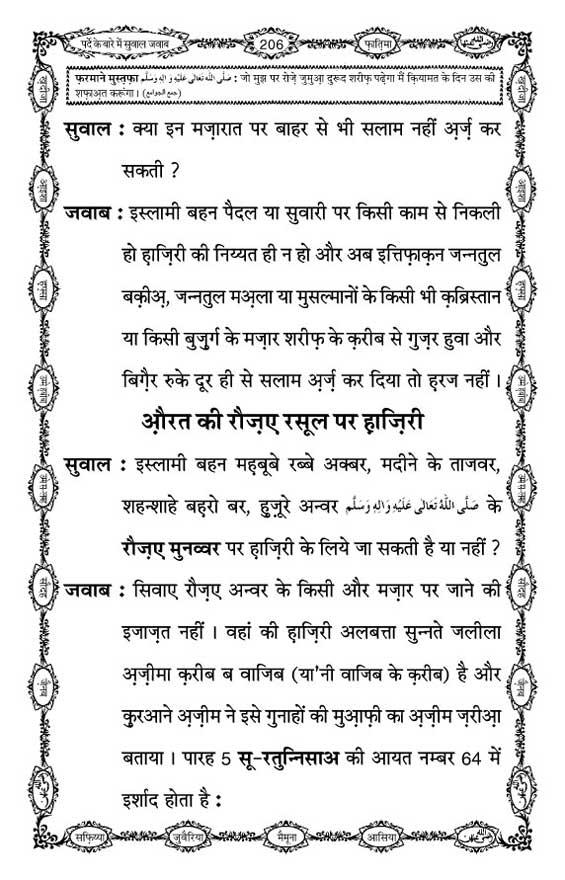 पर्दे के बारे में सुवाल जवाब
206
फ़ातिमा
फ़रमाने मुस्तफ़ा صَلَّى اللهُ تَعَالٰى عَلَيْهِ وَاٰلِهٖ وَسَلَّم : जो मुझ पर रोज़े जुमुआ दुरूद शरीफ़ पढ़ेगा मैं क़ियामत के दिन उस की
शफ़ाअत करूंगा। (جمع الجوامع)
सुवाल : क्या इन मज़ारात पर बाहर से भी सलाम नहीं अ़र्ज़ कर
सकती ?
जवाब : इस्लामी बहन पैदल या सुवारी पर किसी काम से निकली
हो ह़ाज़िरी की निय्यत ही न हो और अब इत्तिफ़ाक़न जन्नतुल
बक़ीअ़, जन्नतुल मअ़ला या मुसल्मानों के किसी भी क़ब्रिस्तान
या किसी बुज़ुर्ग के मज़ार शरीफ़ के क़रीब से गुज़र हुवा और
बिग़ैर रुके दूर ही से सलाम अ़र्ज़ कर दिया तो हरज नहीं ।
औ़रत की रौज़ए रसूल पर ह़ाज़िरी
सुवाल : इस्लामी बहन महबूबे रब्बे अक्बर, मदीने के ताजवर,
शहन्शाहे बहरो बर, हुज़ूरे अन्वर صَلَّى اللهُ تَعَالٰى عَلَيْهِ وَاٰلِهٖ وَسَلَّم के
रौज़ए मुनव्वर पर ह़ाज़िरी के लिये जा सकती है या नहीं ?
जवाब : सिवाए रौज़ए अन्वर के किसी और मज़ार पर जाने की
इजाज़त नहीं । वहां की ह़ाज़िरी अलबत्ता सुन्नते जलीला
अ़ज़ीमा क़रीब ब वाजिब (या'नी वाजिब के क़रीब) है और
क़ुरआने अ़ज़ीम ने इसे गुनाहों की मुआ़फ़ी का अ़ज़ीम ज़रीआ़
बताया । पारह 5 सू-रतुन्निसाअ की आयत नम्बर 64 में
इर्शाद होता है :
सफ़िय्या
जुवैरिया
मैमूना
आसिया